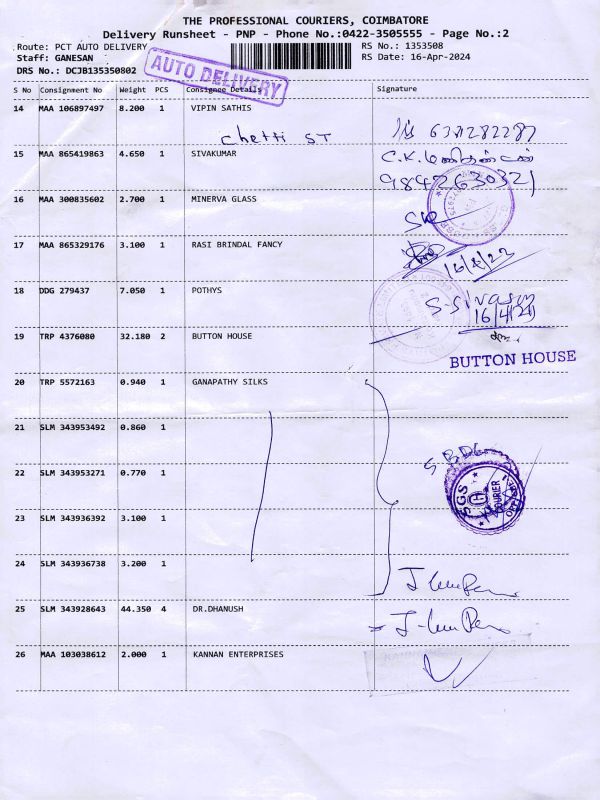 THE PROFESSIONAL COURIERS, COIMBATORE
Delivery Runsheet - PNP - Phone No.:0422-3505555 - Page No.:2
Route: PCT AUTO DELIVERY RS No.: 1353508
Staff: GANESAN RS Date: 16-Apr-2024
DRS No.: DCJB135350802
AUTO DELIVERY
S No Consignment No Weight PCS Consignee Details Signature
14 MAA 106897497 8.200 1 VIPIN SATHIS
chetti ST
15 MAA 865419863 4.650 1 SIVAKUMAR C.K.
9842630321
16 MAA 300835602 2.700 1 MINERVA GLASS
17 MAA 865329176 3.100 1 RASI BRINDAL FANCY
18 DDG 279437 7.050 1 POTHYS
16/4/24
19 TRP 4376080 32.180 2 BUTTON HOUSE
BUTTON HOUSE
20 TRP 5572163 0.940 1 GANAPATHY SILKS
21 SLM 343953492 0.860 1
22 SLM 343953271 0.770 1
SGS COURIER
23 SLM 343936392 3.100 1
24 SLM 343936738 3.200 1
25 SLM 343928643 44.350 4 DR.DHANUSH
26 MAA 103038612 2.000 1 KANNAN ENTERPRISES